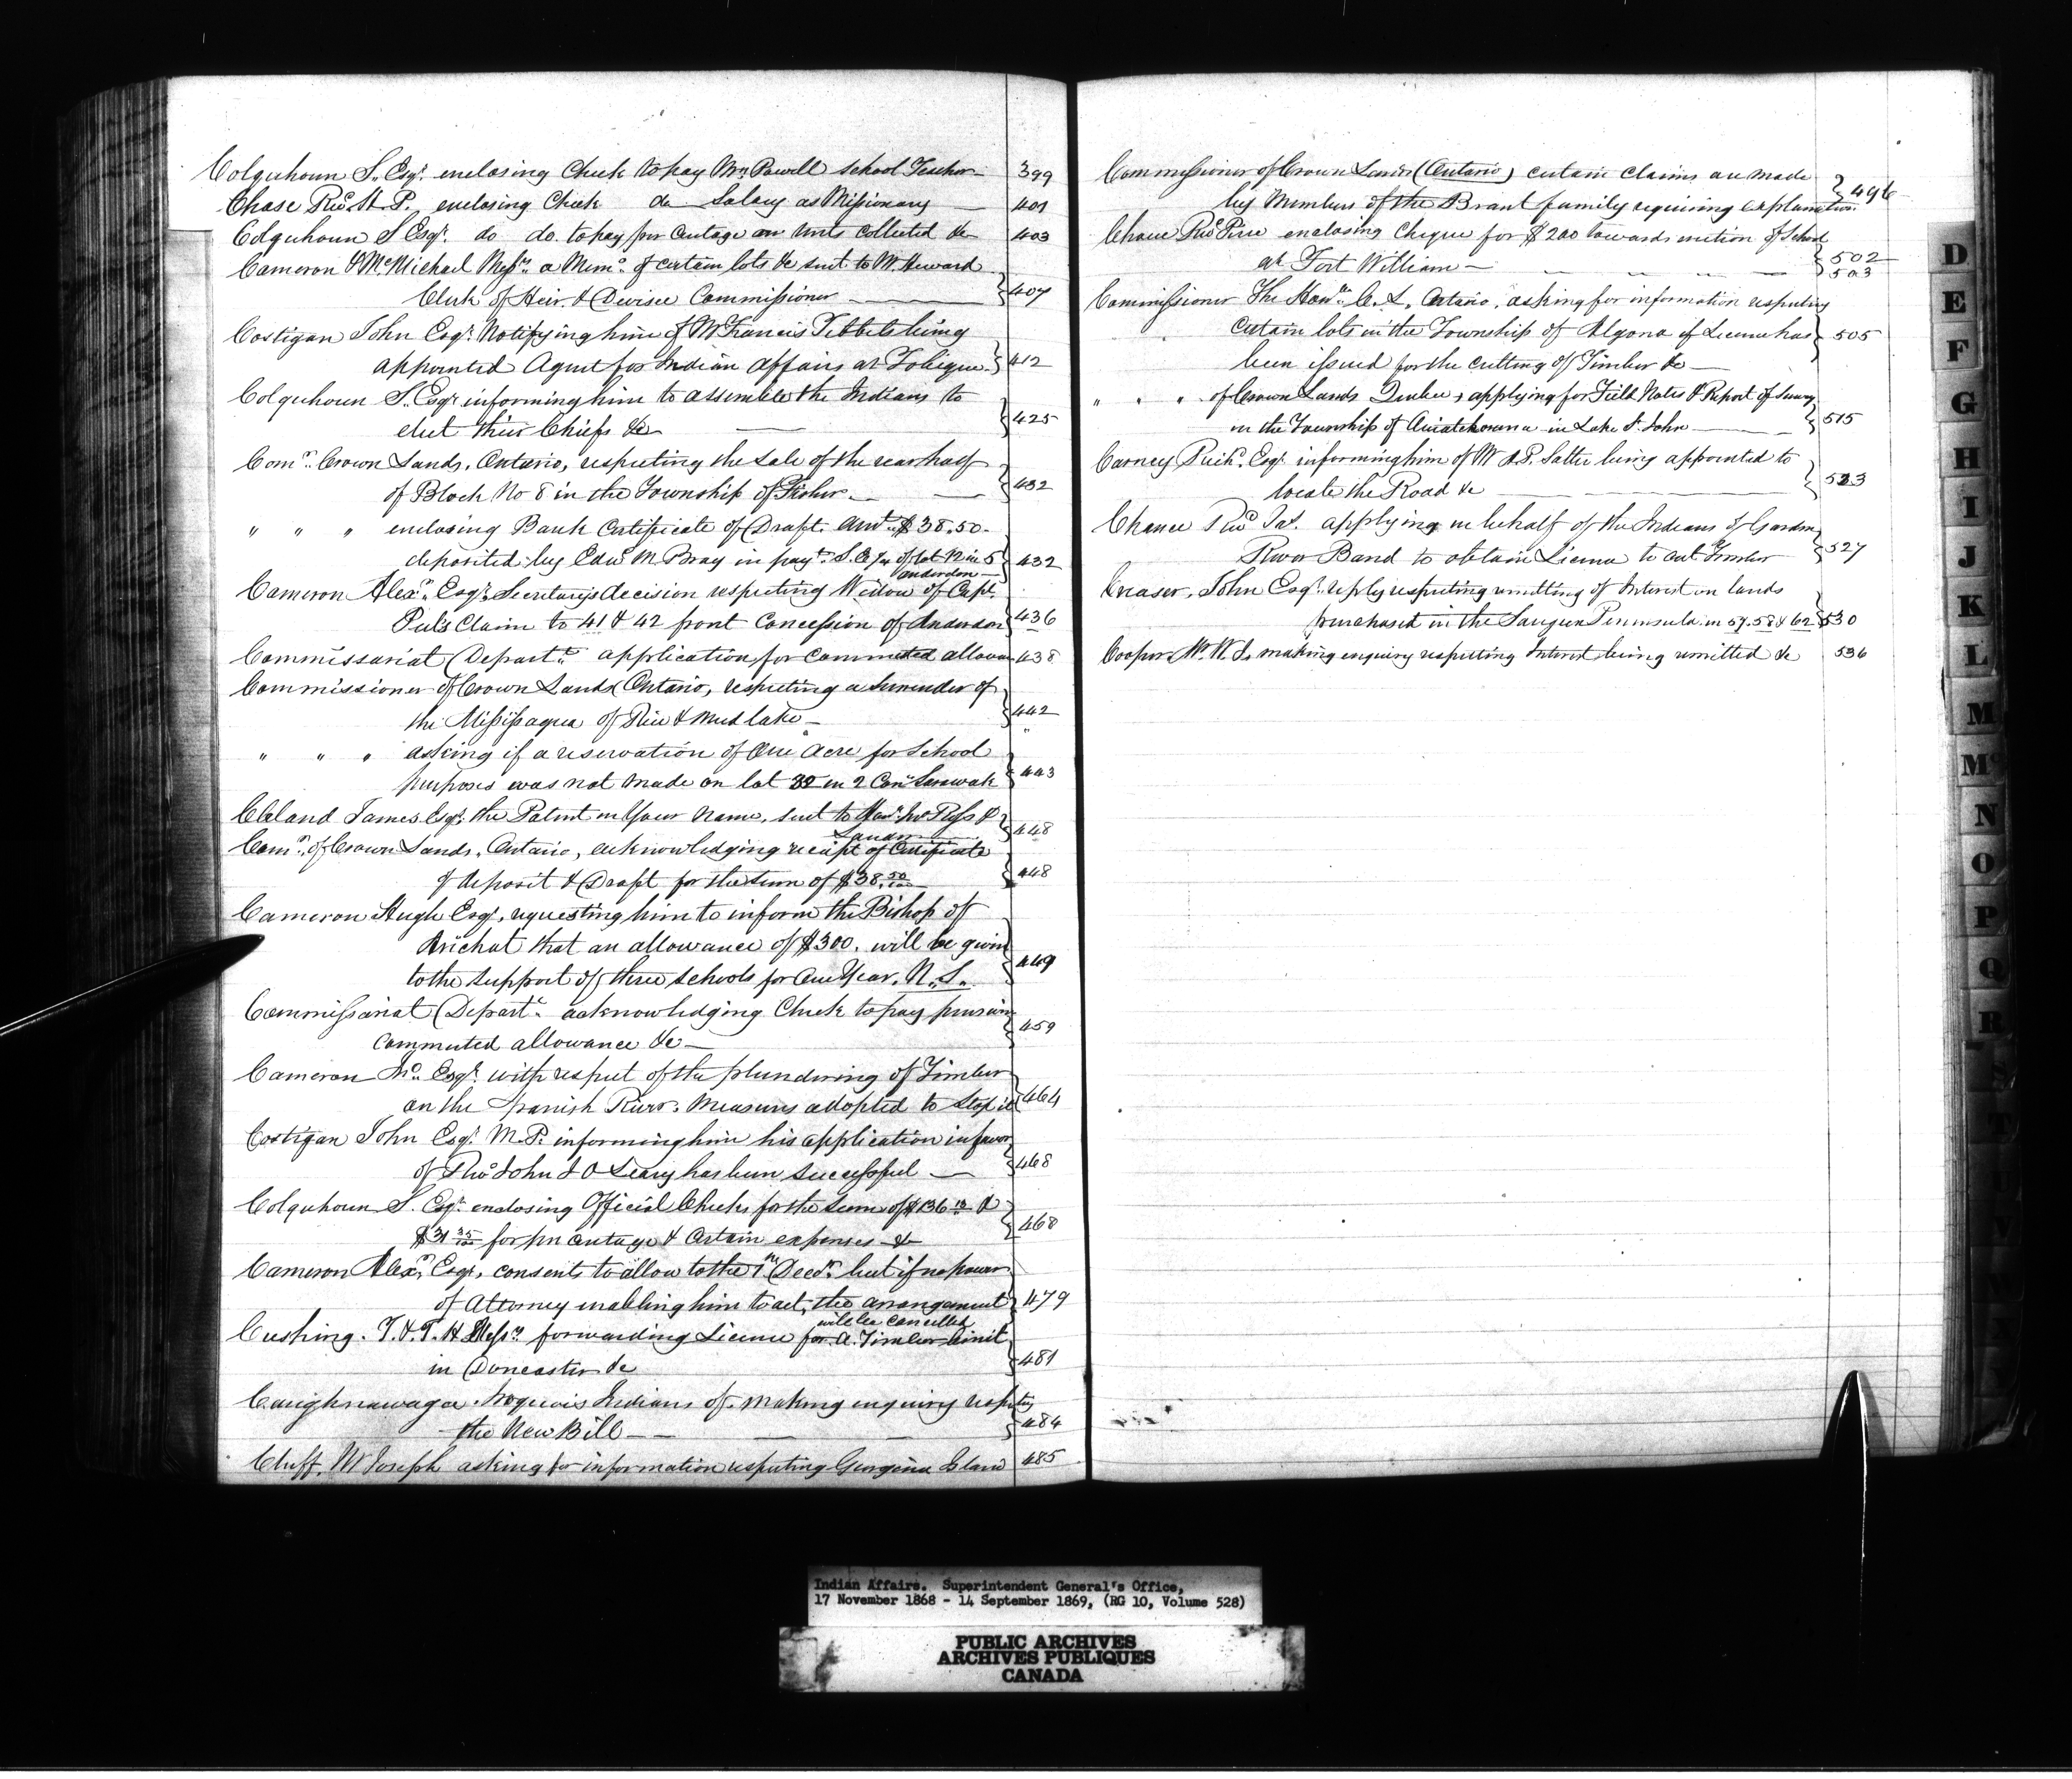 Colquhoun S. Esqr. enclosing Check to pay Mrs Powell school Teacher 399
Chase Revd. H. P. enclosing Check do Salary as Missionary 401
Colquhoun S Esqr. do do. to pay per centage on rents collected &c 403
Cameron & McMichael Messrs. a Memo. of certain lots &c sent to W. Heward
Clerk of Heir & Devisee Commissioner 407
Costigan John Esqr. Notifying him of Mr Francis Tibbets being
appointed Agent for Indian Affairs at Tobique. 412
Colquhoun S. Esqr informing him to assemble the Indians to
elect their Chiefs &c 425
Comr. Crown Lands, Ontario, respecting the sale of the rear half
of Block No 8 in the Township of Fisher 432
" " " enclosing Bank Certificate of Draft. Amt. $38.50.
deposited by Edwd M. Bray in payt. S. E. ¼ of lot No in 5 432
Anderdon
Cameron Alexr. Esqr. Secretary's decision respecting Widow of Capt.
Claim to 41 & 42 front Concession of Anderdon 436
Commissariat Departt. application for commuted allowa 438
Commissioner of Crown Lands Ontario, respecting a surrender of
the Missisaqua of Rice & Mud lake 442
" " " asking if a reservation of One Acre for School
purposes was not made on lot 32 in 2 Con Sarawak 443
Cleland James Esqr. the Patent in Your name, sent to 448
Comr. of Crown Lands, Ontario, acknowledging receipt of Certificate
of deposit & Draft for the sum of $38.50/100 448
Cameron Hugh Esqr. requesting him to inform the Bishop of
Arichat that an allowance of $300. will be given
to the support of three schools for One Year. N. S. 449
Commissariat Departt. acknowledging Check to pay pension
commuted allowance &c 459
Cameron Jno. Esqr. with respect of the plundering of Timber
on the Spanish River. Measures adopted to stop it 464
Costigan John Esqr. M. P. informing him his application in favor
of Revd John J O Leary has been successful 468
Colquhoun S. Esqr. enclosing Official Checks for the sum of $136 &
$31 35/100 for per centage & Certain expenses &c 468
Cameron Alexr. Esqr. consents to allow to the 1st Decr. but if no power
of Attorney enabling him to act, the arrangement 479
will be cancelled
Cushing. T. & T. H Messrs. forwarding License for a Timber Limit
in Doncaster &c 481
Caughnawaga. Iroquois Indians of. making enquiry respecting
the New Bill 484
Cluff. Mr Joseph asking for information respecting Georgina Island 485
Commissioner of Crown Lands (Ontario) certain claims are made
by Members of the Brant family requiring explanation. 496
Revd Pere enclosing Cheque for $200 towards erection of School
at Fort William 502
503
Commissioner The Honble C. L. Ontario, asking for information respecting
certain lots in the Township of Algona if License has 505
been issued for the cutting of Timber &c
" " " of Crown Lands Quebec, applying for Field Notes & Report of Survey
in the Township of in Lake St. John 515
Carney Richd. Esqr. informing him of Mr A. P. Salter being appointed to
locate the Road &c 523
Chance Revd Jas. applying in behalf of the Indians of Garden
River Band to obtain License to cut Timber 527
Creasor, John Esqr. reply respecting remitting of Interest on lands
purchased in the Saugeen Peninsula in 57. 58 & 62 530
Cooper Mr. W. S. making enquiry respecting Interest being remitted &c 536
D
E
F
G
H
I
J
K
L
M
Mc
N
O
P
Q
R
S
T
Indian Affairs. Superintendent General's Office,
17 November 1868 - 14 September 1869, (RG 10, Volume 528)
PUBLIC ARCHIVES
ARCHIVES PUBLIQUES
CANADA